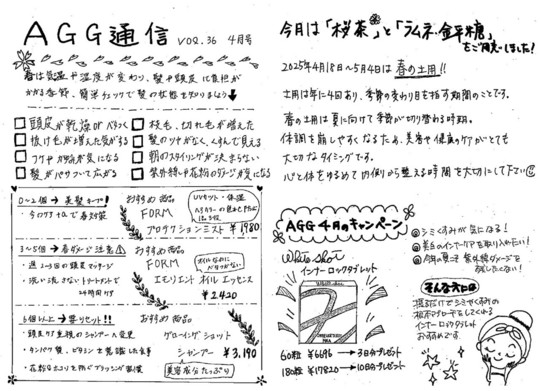 AGG通信 VOL.36 4月号
春は気温や湿度が変わり、髪や頭皮に負担が
かかる季節、簡単チェックで髪の状態を知りましょう
頭皮が乾燥orベタつく
抜け毛が増えた気がする
フケやかゆみが気になる
髪がパサついて広がる
枝毛、切れ毛が増えた
髪のツヤがなく、くすんで見える
朝のスタイリングが決まらない
紫外線や花粉のダメージが気になる
0〜2個 → 美髪キープ!
今のケアそのままで春対策
おすすめ商品
FORM
プロテクションミスト ¥1980
UVカット・保湿
3〜5個 → 春ダメージ注意
週1〜2回の頭皮マッサージ
洗い流さないトリートメントで
24時間ケア
おすすめ商品
FORM
エモリエントオイルエッセンス
¥2420
オイルなのに
ベタつかない
6個以上 → 要リセット!!
頭皮ケア重視のシャンプーへ変更
タンパク質、ビタミンを意識した食事
花粉やホコリを防ぐブラッシング習慣
おすすめ商品
グローイングショット
シャンプー ¥3,190
美容成分たっぷり
今月は「桜茶」と「ラムネ・金平糖」
をご用意しました!
2025年4月18日〜5月4日は 春の土用!!
土用は年に4回あり、季節の変わり目を指す期間のことです。
春の土用は夏に向けて季節が切り替わる時期。
体調を崩しやすくなるため、美容や健康のケアがとても
大切なタイミングです。
心と体をゆるめて内側から整える時間を大切にして下さい
AGG4月のキャンペーン
White shot
インナーロックタブレット
60粒 ¥6696 → 3日分プレゼント
180粒 ¥17820 → 10日分プレゼント
シミくすみが気になる!
美白のインナーケアを取り入れたい!
今年の夏こそ紫外線ダメージを
残したくない!
そんな方には
インナーロックタブレット
おすすめです。